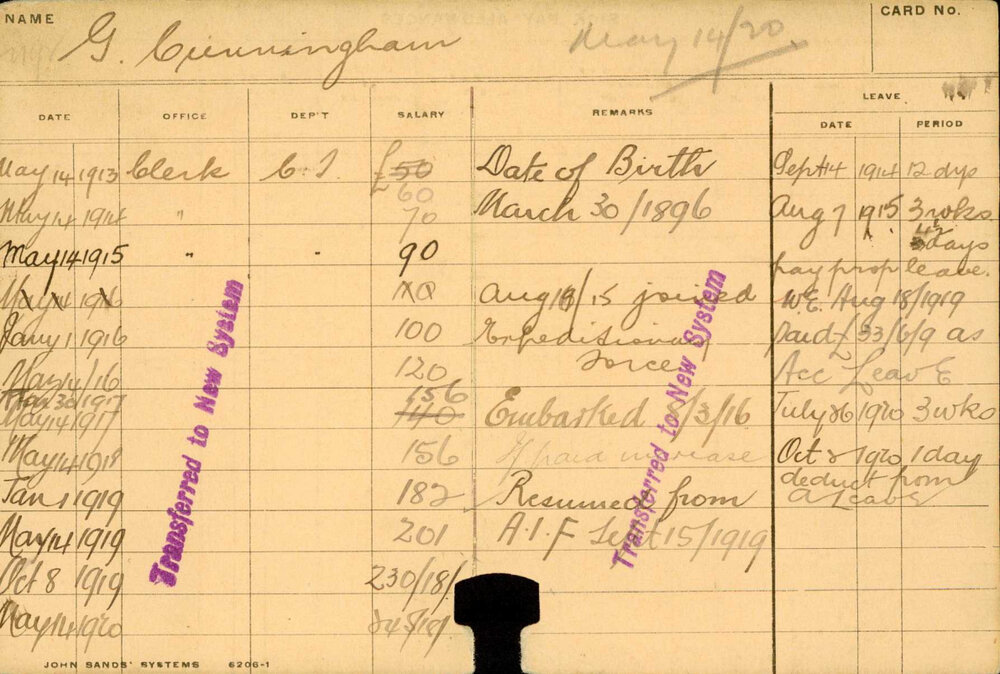 NAME G. Cunningham May 14/20. CARD No.
LEAVE
DATE OFFICE DEP'T SALARY REMARKS DATE PERIOD
May 14 1913 Clerk C.I. £50 Date of Birth Sept 14 1914 12 dys
£60
May 14 1914 " 70 March 30/1896 Aug 7 1915 3 wks
days
May 14 1915 " " 90 pay prop leave.
May 14 1916 Aug 18/15 joined W.E. Aug 18/1919
Jany 1 1916 100 Expeditionary paid £33/6/9 as
Force
May 14/16 120 Acc Leave
Mar 30 1917 156
May 14 1917 140 Embarked 8/3/16 July 26 1920 3 wks
May 14 1918 156 If paid increase Oct 2 1920 1 day
deduct from
Jan 1 1919 182 Resumed from A Leave
May 14 1919 201 A.I.F Sept 15/1919
Oct 8 1919 230/18/
May 14 1920
Transferred to New System
Transferred to New System
JOHN SANDS' SYSTEMS 6206-1